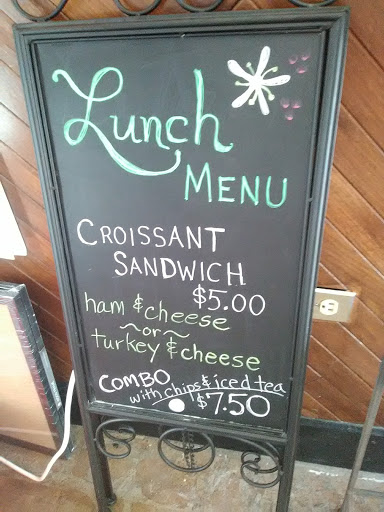 Lunch
MENU
CROISSANT
SANDWICH
$5.00
ham & cheese
~or~
turkey & cheese
COMBO
with chips & iced tea
$7.50